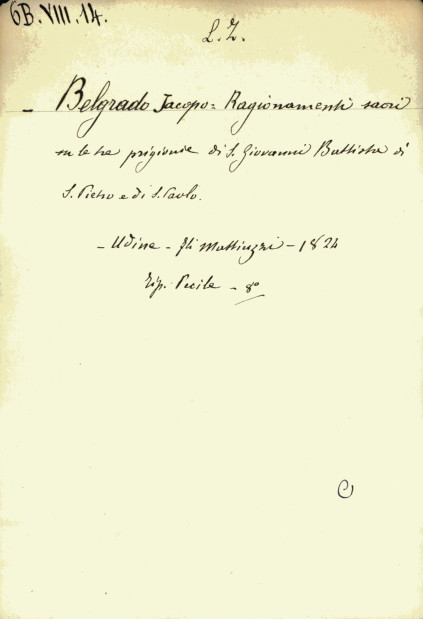 6B.VIII.14.
L.Z.
- Belgrado Jacopo = Ragionamenti sacri
su le tre prigionie di S. Giovanni Battista di
S. Pietro e di S. Paolo.
- Udine - f.lli Mattiuzzi - 1824
Tip. Pecile - 8°
C